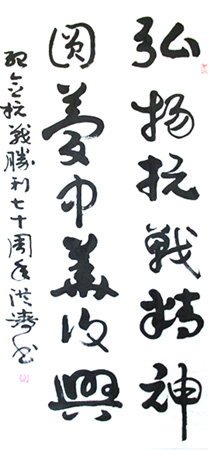 弘揚抗戰精神
圓夢中華復興
紀念抗戰勝利七十周年洪濤書